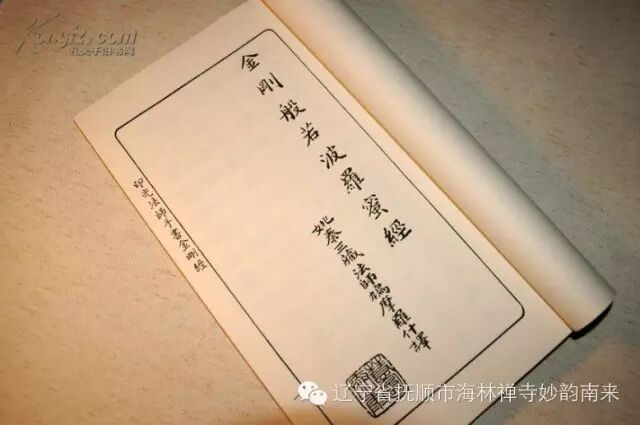 Kongfz.com
孔夫子旧书网
金剛般若波羅蜜經
姚秦三藏法師鳩摩羅什譯
印光法師手書金剛經
辽宁省抚顺市海林禅寺妙韵南来